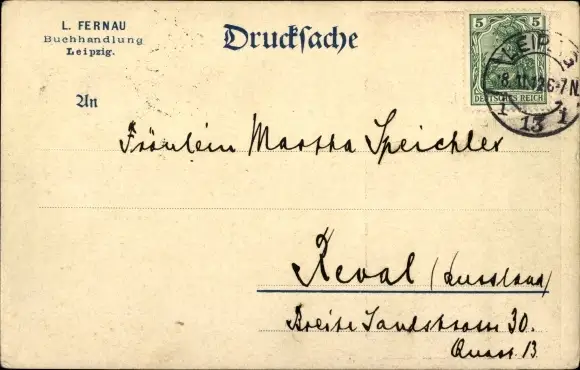 L. FERNAU
Buchhandlung
Leipzig.
Drucksache
5 5
DEUTSCHES REICH
LEIPZIG
8.11.12.6-7N.
13
An
Fräulein Martha Speichler
Reval (Russland)
Breite Sandstrasse 30.
Quart 13